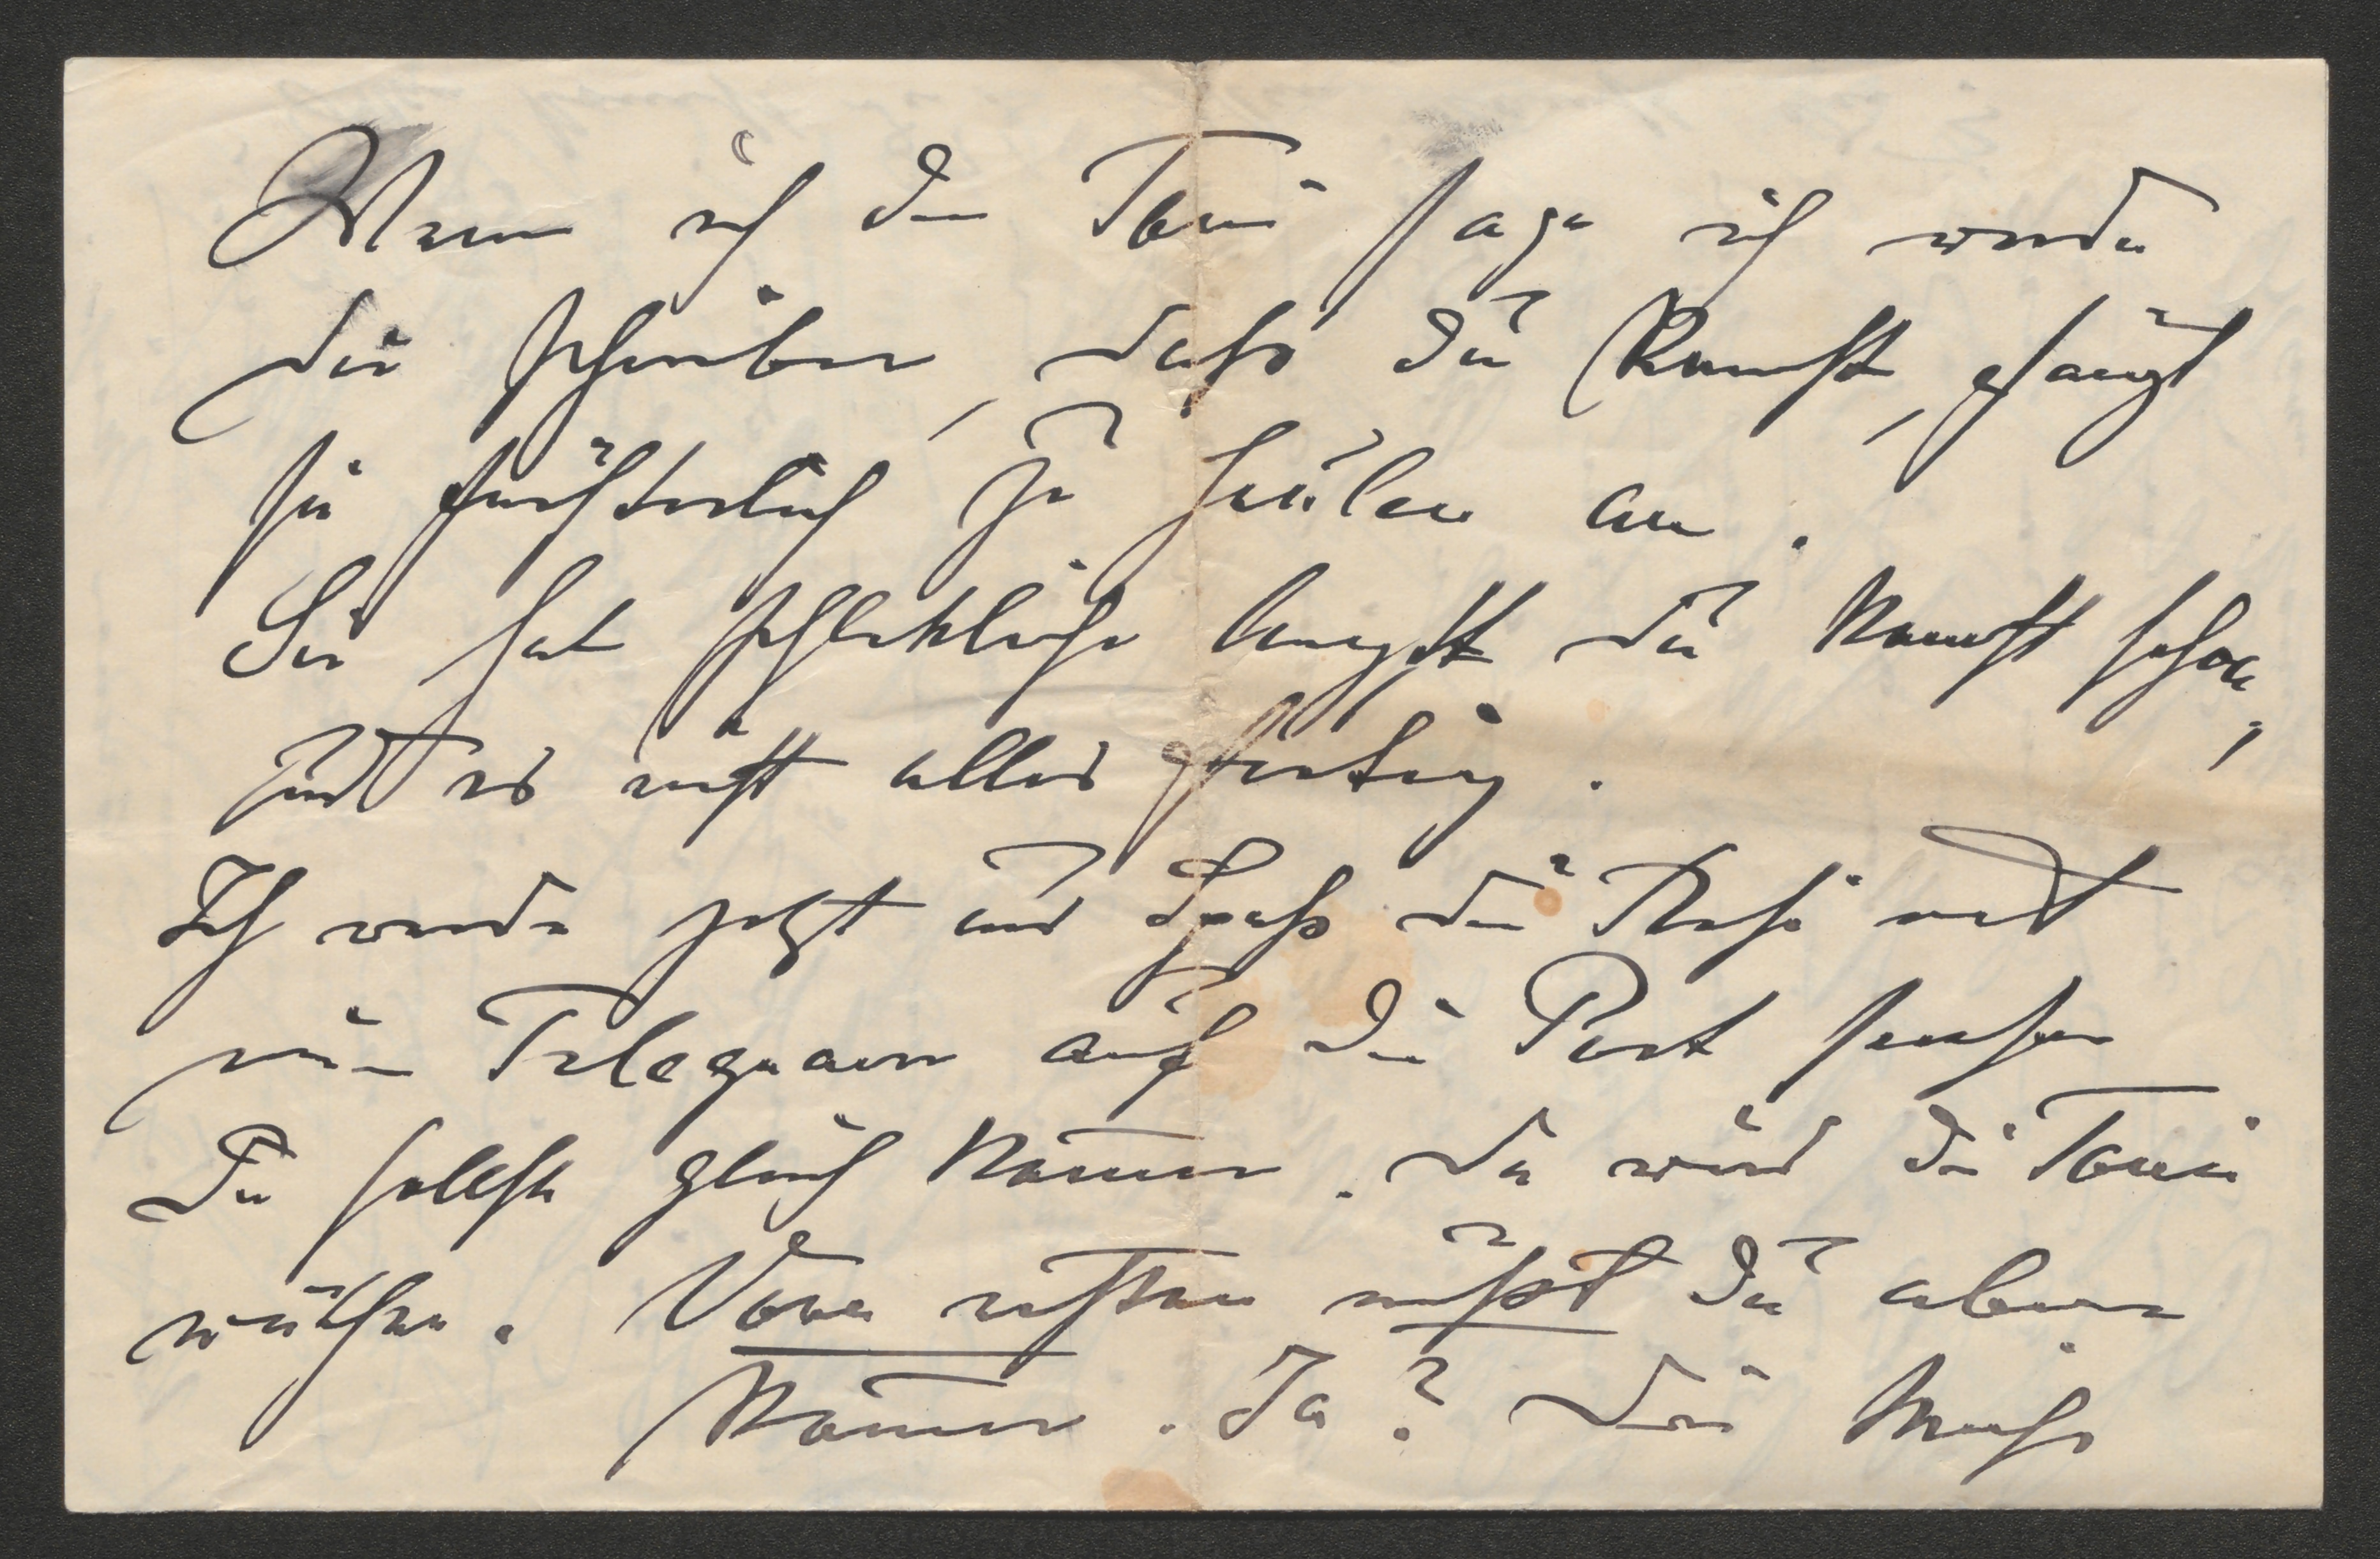 Wenn ich der Toni sage ich werde
dir schreiben, dass du kommst, fängt
sie fürchterlich zu heulen an.
Sie hat schreckliche Angst du kommst schon,
und es nicht alles fertig.
Ich werde jetzt aus Spass die Resi mit
ein Telegram auf die Post
Du sollst gleich kommen. Da wird die Toni
Vom ersten musst du aber
kommen. Ja? Die